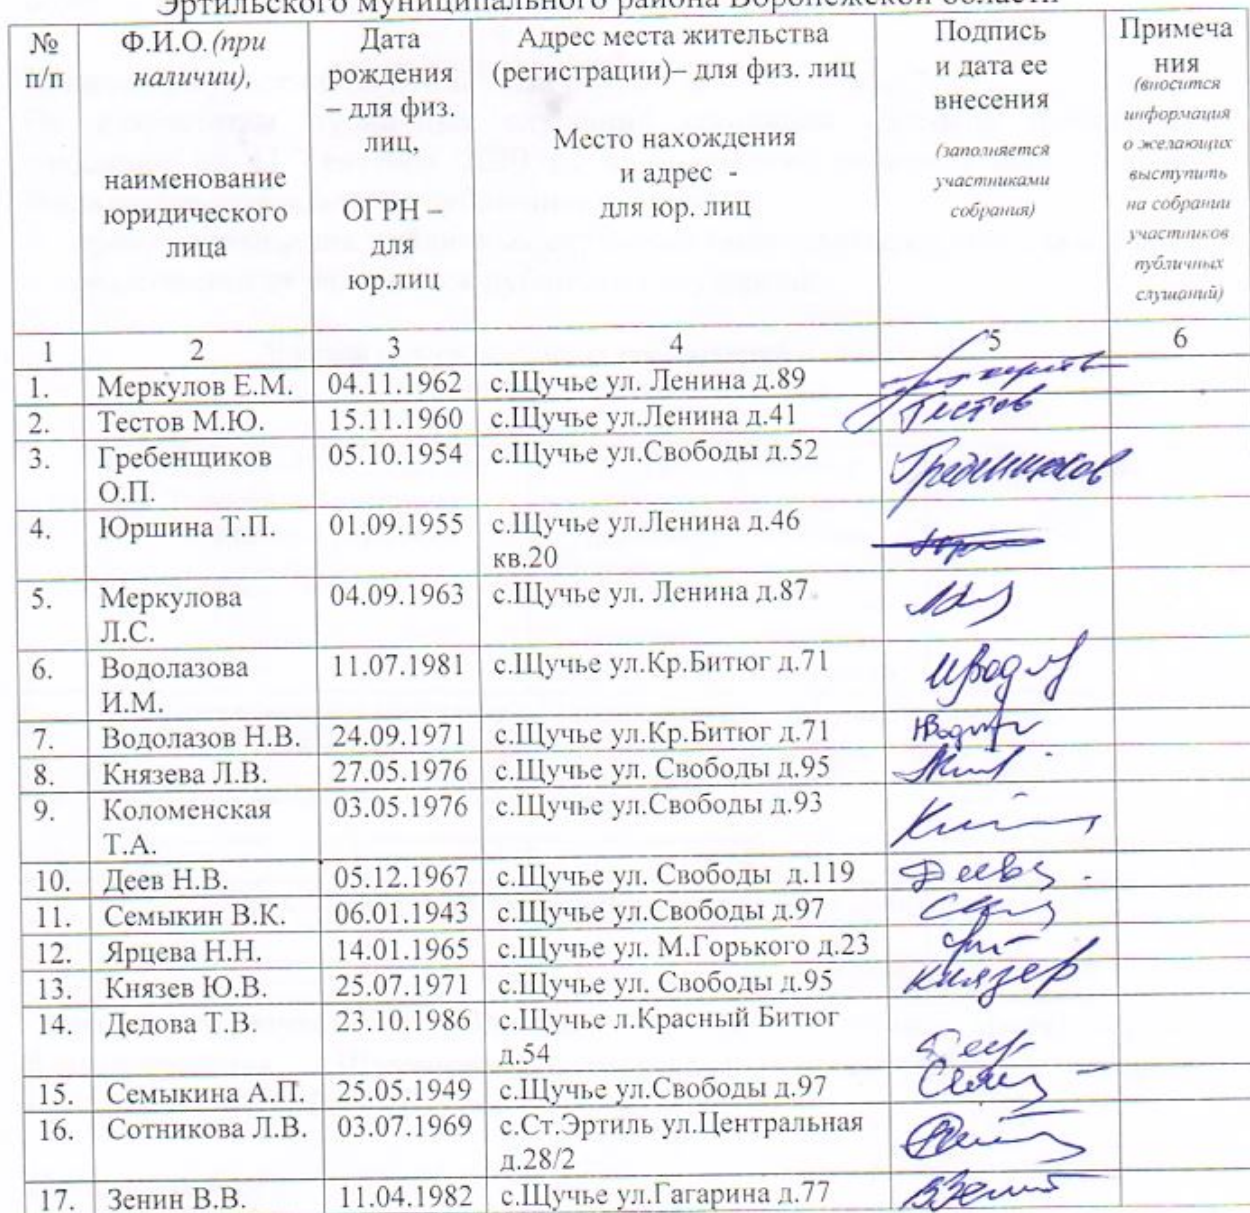 Эртильского муниципального района Воронежской области
№ п/п
Ф.И.О. (при наличии),
наименование юридического лица
Дата рождения – для физ. лиц,
ОГРН – для юр.лиц
Адрес места жительства (регистрации)– для физ. лиц
Место нахождения и адрес - для юр. лиц
Подпись и дата ее внесения
(заполняется участниками собрания)
Примеча ния
(вносится информация о желающих выступить на собрании участников публичных слушаний)
1 2 3 4 5 6
1. Меркулов Е.М. 04.11.1962 с.Щучье ул. Ленина д.89
2. Тестов М.Ю. 15.11.1960 с.Щучье ул.Ленина д.41 Тестов
3. Гребенщиков О.П. 05.10.1954 с.Щучье ул.Свободы д.52 Гребенщиков
4. Юршина Т.П. 01.09.1955 с.Щучье ул.Ленина д.46 кв.20
5. Меркулова Л.С. 04.09.1963 с.Щучье ул. Ленина д.87
6. Водолазова И.М. 11.07.1981 с.Щучье ул.Кр.Битюг д.71
7. Водолазов Н.В. 24.09.1971 с.Щучье ул.Кр.Битюг д.71
8. Князева Л.В. 27.05.1976 с.Щучье ул. Свободы д.95
9. Коломенская Т.А. 03.05.1976 с.Щучье ул.Свободы д.93
10. Деев Н.В. 05.12.1967 с.Щучье ул. Свободы д.119
11. Семыкин В.К. 06.01.1943 с.Щучье ул.Свободы д.97
12. Ярцева Н.Н. 14.01.1965 с.Щучье ул. М.Горького д.23
13. Князев Ю.В. 25.07.1971 с.Щучье ул. Свободы д.95 Князев
14. Дедова Т.В. 23.10.1986 с.Щучье л.Красный Битюг д.54
15. Семыкина А.П. 25.05.1949 с.Щучье ул.Свободы д.97
16. Сотникова Л.В. 03.07.1969 с.Ст.Эртиль ул.Центральная д.28/2
17. Зенин В.В. 11.04.1982 с.Щучье ул.Гагарина д.77